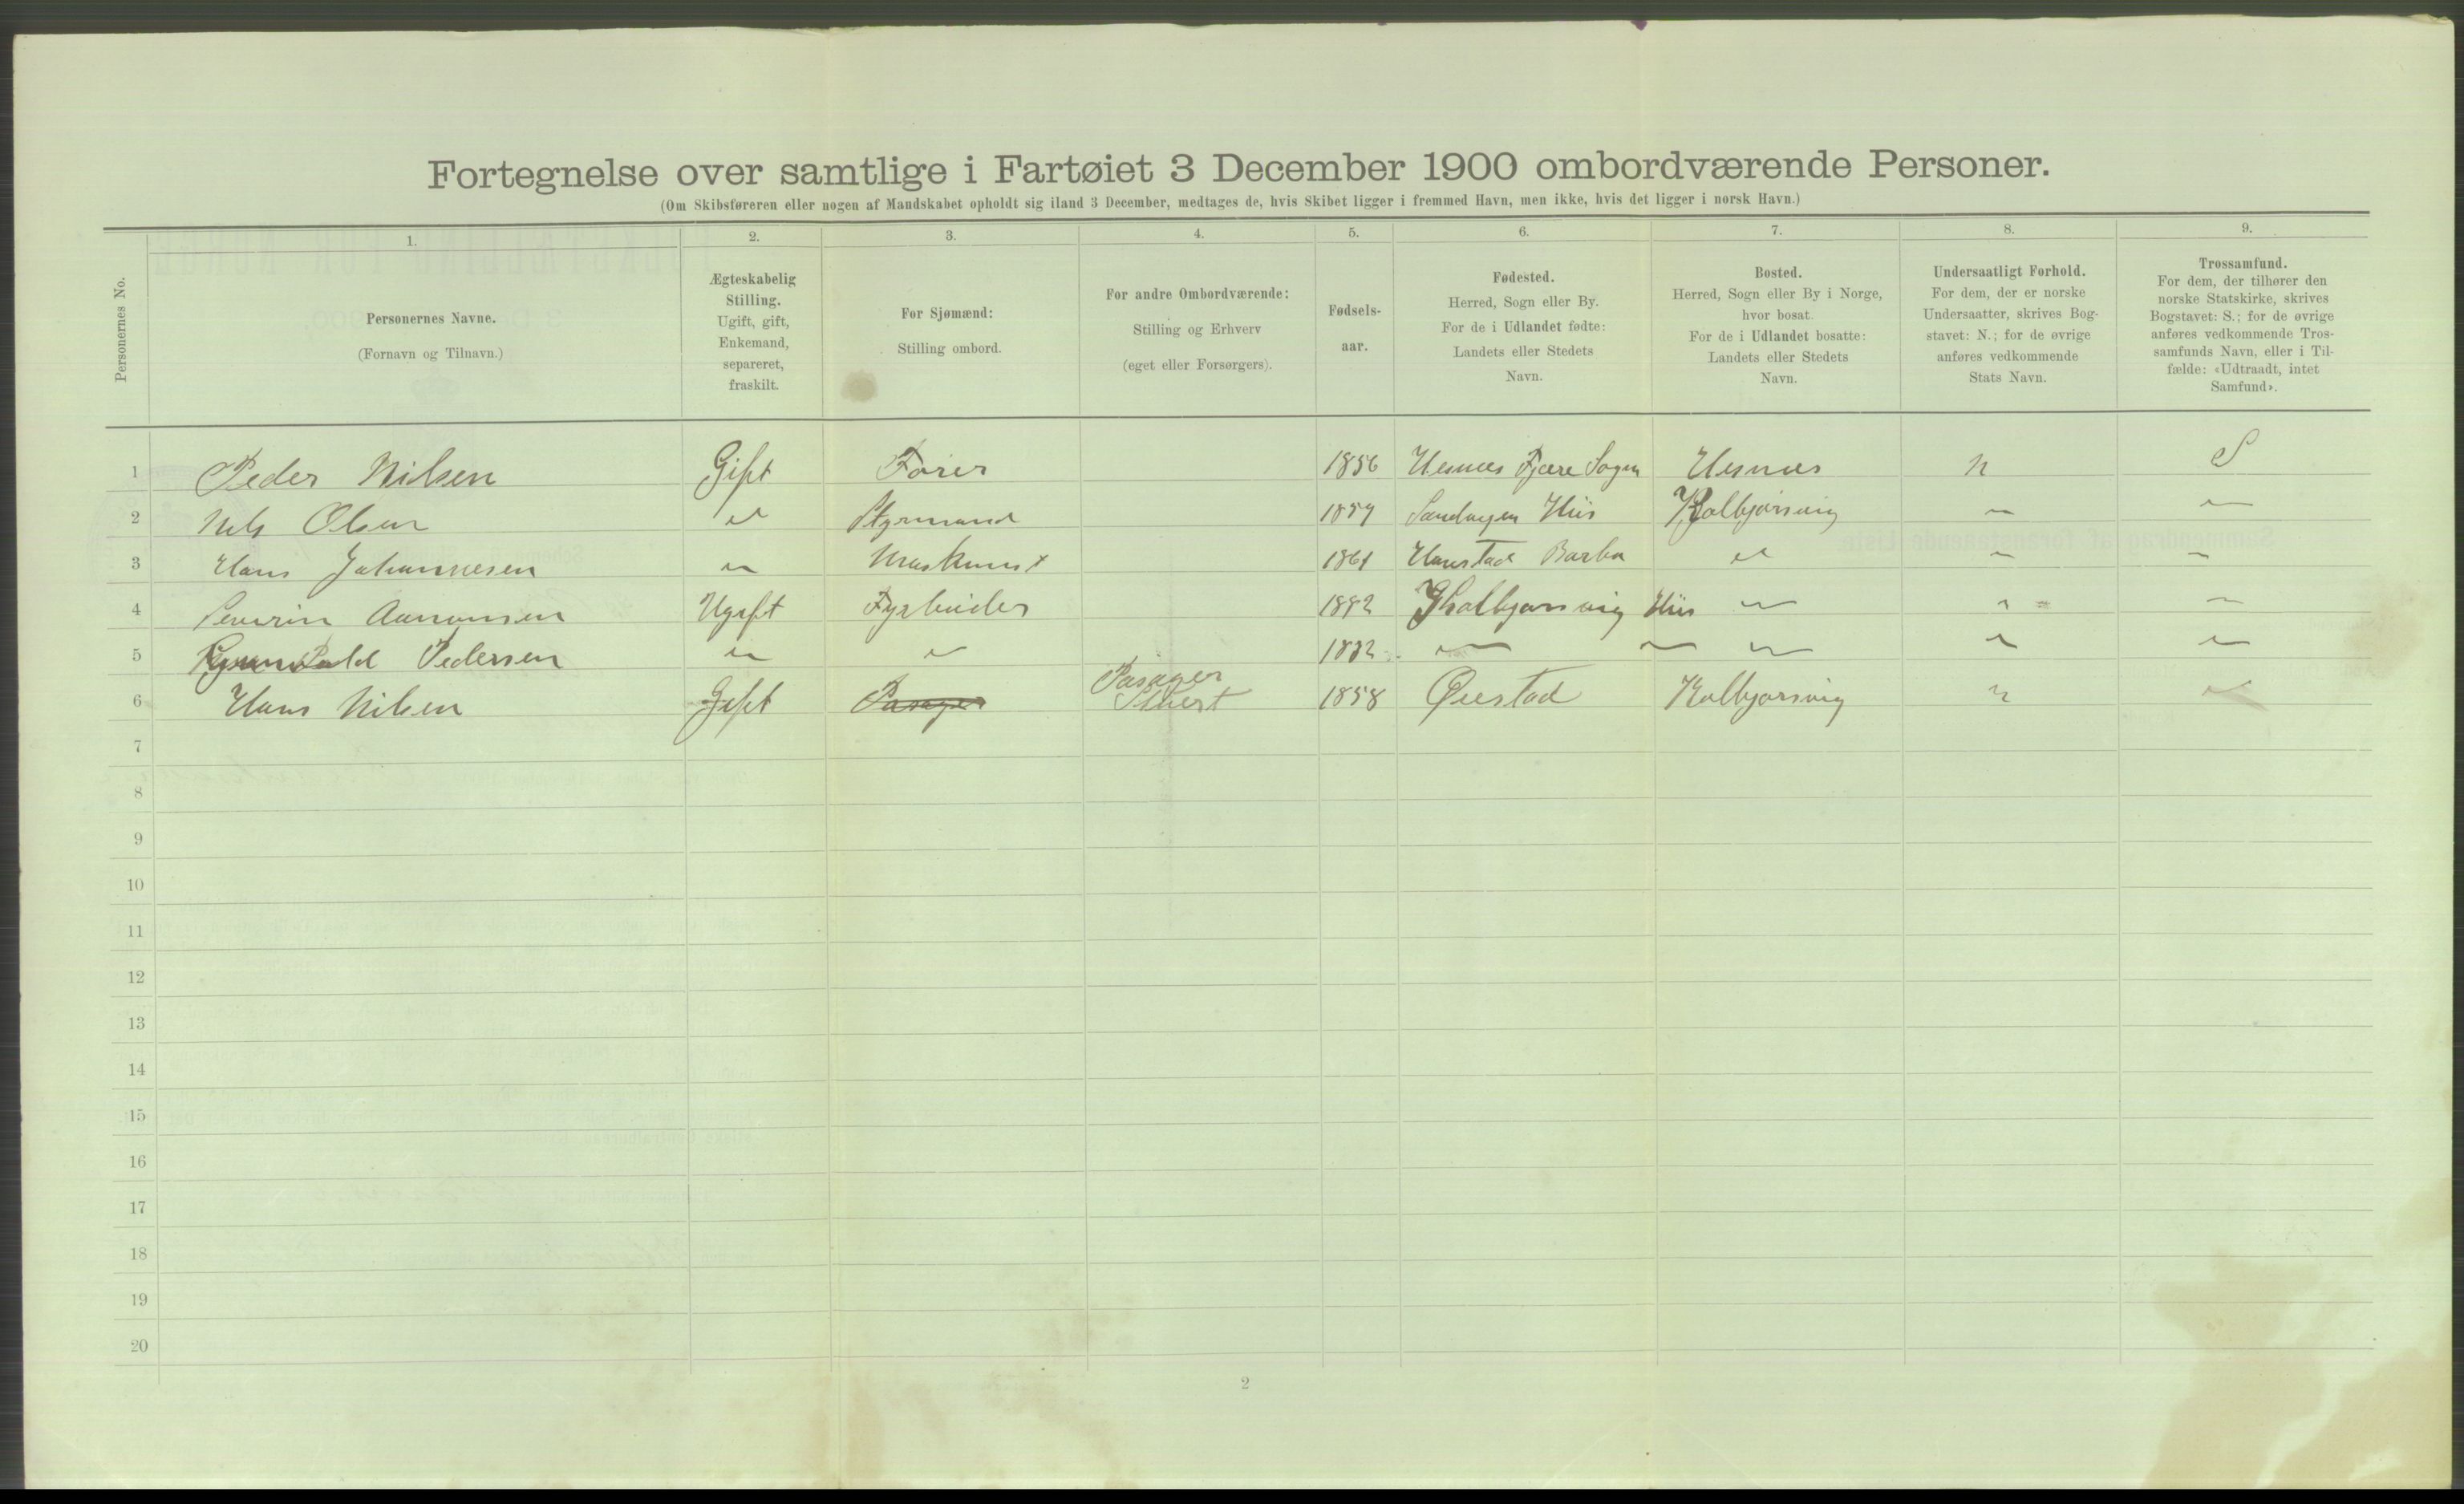 Fortegnelse over samtlige i Fartøiet 3 December 1900 ombordværende Personer.
(Om Skibsføreren eller nogen af Mandskabet opholdt sig iland 3 December, medtages de, hvis Skibet ligger i fremmed Havn, men ikke, hvis det ligger i norsk Havn.)
Personernes No.
1. 2. 3. 4. 5. 6. 7. 8. 9.
Personernes Navne.
(Fornavn og Tilnavn.)
Ægteskabelig
Stilling.
Ugift, gift,
Enkemand,
separeret,
fraskilt.
For Sjømænd:
Stilling ombord.
For andre Ombordværende:
Stilling og Erhverv
(eget eller Forsørgers).
Fødsels-
aar.
Fødested.
Herred, Sogn eller By.
For de i Udlandet fødte:
Landets eller Stedets
Navn.
Bosted.
Herred, Sogn eller By i Norge,
hvor bosat.
For de i Udlandet bosatte:
Landets eller Stedets
Navn.
Undersaatligt Forhold.
For dem, der er norske
Undersaatter, skrives Bog-
stavet: N.; for de øvrige
anføres vedkommende
Stats Navn.
Trossamfund.
For dem, der tilhører den
norske Statskirke, skrives
Bogstavet: S.; for de øvrige
anføres vedkommende Tros-
samfunds Navn, eller i Til-
fælde: «Udtraadt, intet
Samfund».
1 Peder Nilsen Gift Förer 1856 Hesnæs Fjære Sogn Hesnæs n S
2 Nils Olsen " Styrmand Hiis Kolbjørnsvig " "
3 Hans Johannesen " Maskinist 1861 Barbu " " "
4 Severin Aanonsen Ugift Fyrbøder 1882 Kholbjørnsvig Hiis " " "
5 Pedersen " " 1882 " " " " "
6 Hans Nilsen Gift Pasager Pasager 1858 Øiestad Kolbjørnsvig n "
7
8
9
10
11
12
13
14
15
16
17
18
19
20
2